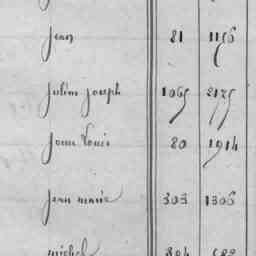 jean 21 1156
julien joseph 1065 2175
jean Louis 20 1914
jean marie 303 1306
michel